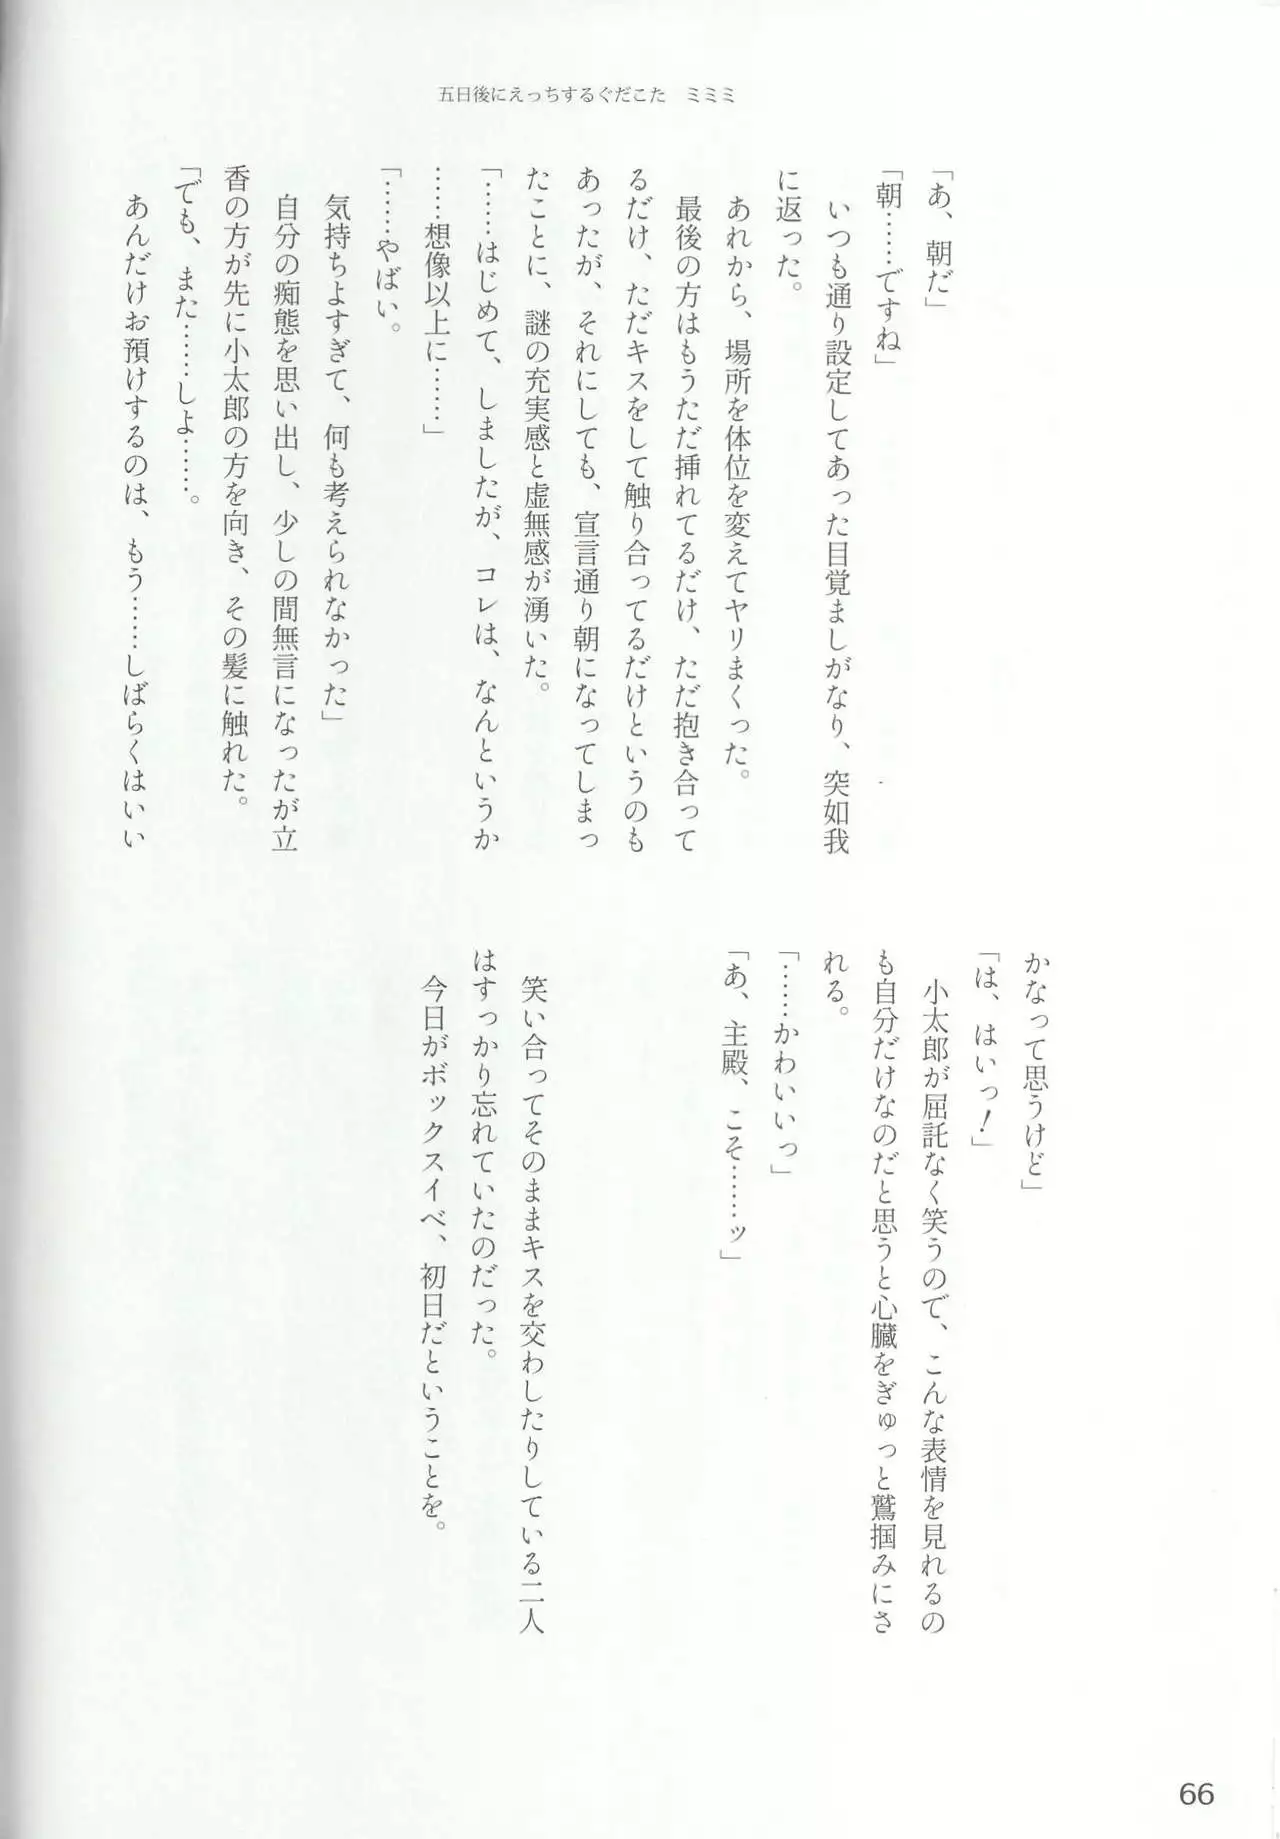 五日後にえっちするぐだこた　ミミミ
「あ、朝だ」
「朝……ですね」
いつも通り設定してあった目覚ましがなり、突如我
に返った。
あれから、場所を体位を変えてヤリまくった。
最後の方はもうただ挿れてるだけ、ただ抱き合って
るだけ、ただキスをして触り合ってるだけというのも
あったが、それにしても、宣言通り朝になってしまっ
たことに、謎の充実感と虚無感が湧いた。
「……はじめて、しましたが、コレは、なんというか
……想像以上に……」
「……やばい。
気持ちよすぎて、何も考えられなかった」
自分の痴態を思い出し、少しの間無言になったが立
香の方が先に小太郎の方を向き、その髪に触れた。
「でも、また……しよ……。
あんだけお預けするのは、もう……しばらくはいい
かなって思うけど」
「は、はいっ！」
小太郎が屈託なく笑うので、こんな表情を見れるの
も自分だけなのだと思うと心臓をぎゅっと鷲掴みにさ
れる。
「……かわいいっ」
「あ、主殿、こそ……ッ」
笑い合ってそのままキスを交わしたりしている二人
はすっかり忘れていたのだった。
今日がボックスイベ、初日だということを。
66